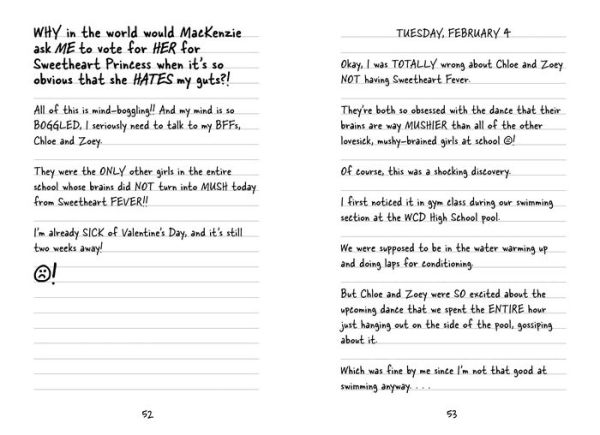 WHY in the world would MacKenzie
ask ME to vote for HER for
Sweetheart Princess when it's so
obvious that she HATES my guts?!
All of this is mind-boggling!! And my mind is so
BOGGLED, I seriously need to talk to my BFFs,
Chloe and Zoey.
They were the ONLY other girls in the entire
school whose brains did NOT turn into MUSH today
from Sweetheart FEVER!!
I'm already SICK of Valentine's Day, and it's still
two weeks away!
☹!
52
TUESDAY, FEBRUARY 4
Okay, I was TOTALLY wrong about Chloe and Zoey
NOT having Sweetheart Fever.
They're both so obsessed with the dance that their
brains are way MUSHIER than all of the other
lovesick, mushy-brained girls at school ☹!
Of course, this was a shocking discovery.
I first noticed it in gym class during our swimming
section at the WCD High School pool.
We were supposed to be in the water warming up
and doing laps for conditioning.
But Chloe and Zoey were SO excited about the
upcoming dance that we spent the ENTIRE hour
just hanging out on the side of the pool, gossiping
about it.
Which was fine by me since I'm not that good at
swimming anyway. . . .
53